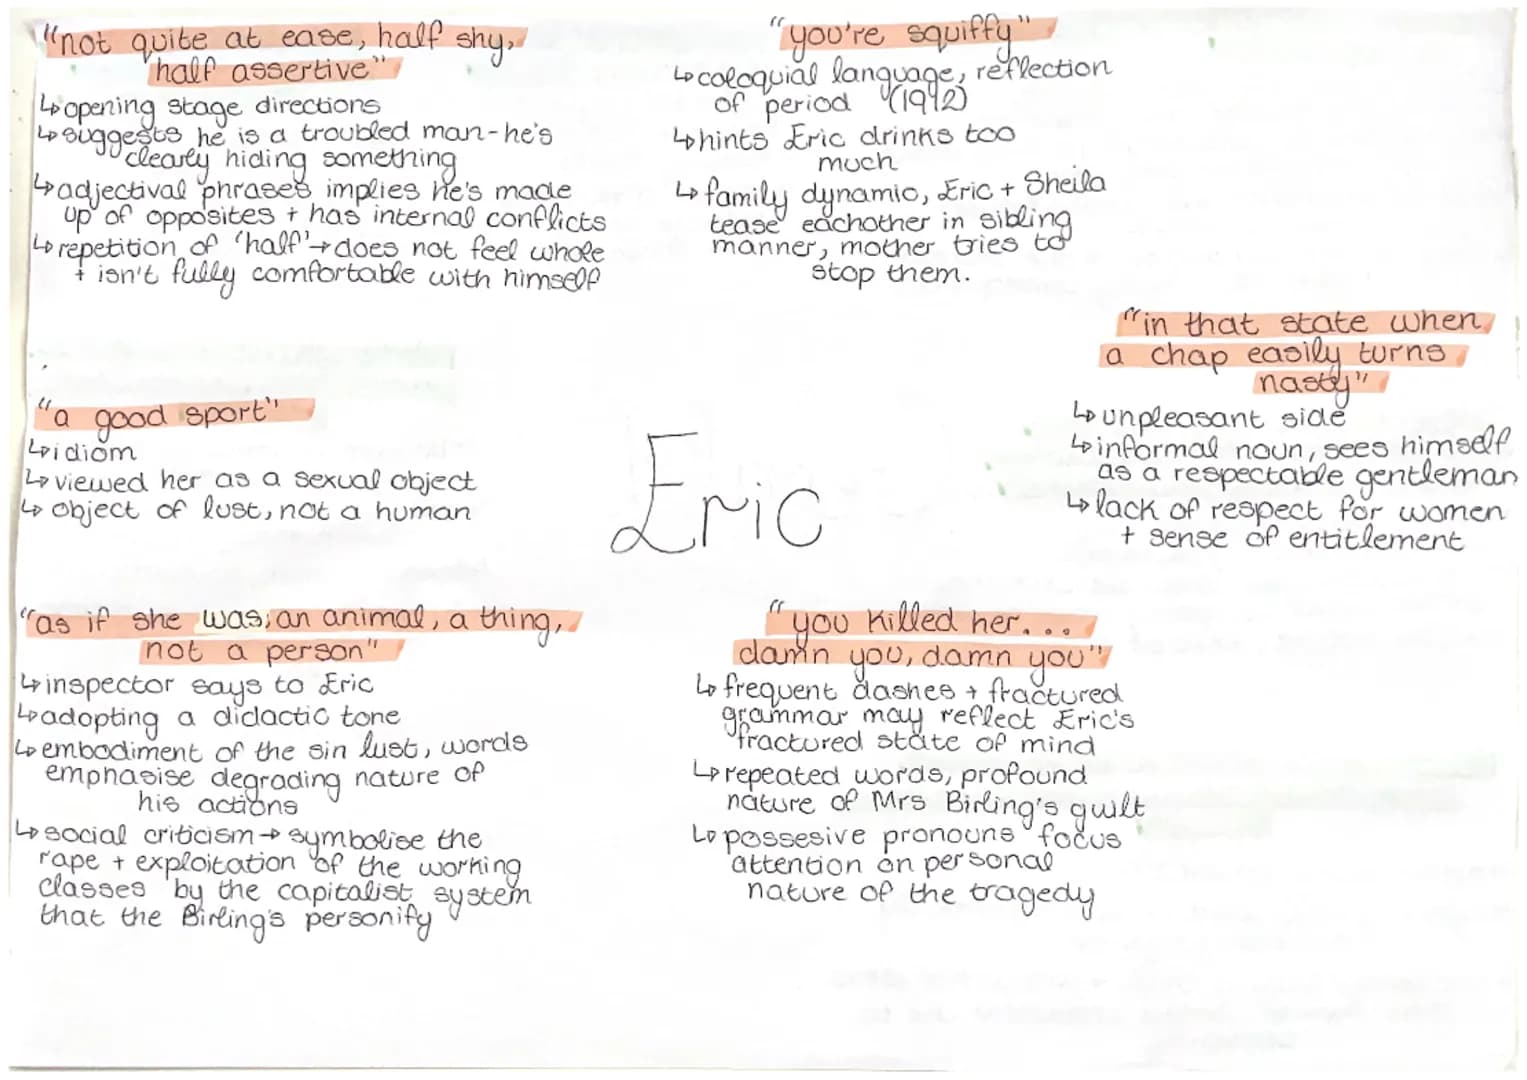 "not quite at ease, half shy,
half assertive"
↳ opening stage directions
↳ suggests he is a troubled man - he's
clearly hiding something
↳ adjectival phrases implies he's made
up of opposites + has internal conflicts
↳ repetition of 'half' → does not feel whole
+ isn't fully comfortable with himself
"you're squiffy"
↳ coloquial language, reflection
of period (1912)
↳ hints Eric drinks too
much
↳ family dynamic, Eric + Sheila
tease eachother in sibling
manner, mother tries to
stop them.
"in that state when
a chap easily turns
nasty"
↳ unpleasant side
↳ informal noun, sees himself
as a respectable gentleman
↳ lack of respect for women
+ sense of entitlement
"a good sport"
↳ idiom
↳ viewed her as a sexual object
↳ object of lust, not a human
Eric
"as if she was, an animal, a thing,
not a person"
↳ inspector says to Eric
↳ adopting a didactic tone
↳ embodiment of the sin lust, words
emphasise degrading nature of
his actions
↳ social criticism → symbolise the
rape + exploitation of the working
classes by the capitalist system
that the Birling's personify
"you killed her...
damn you, damn you"
↳ frequent dashes + fractured
grammar may reflect Eric's
fractured state of mind
↳ repeated words, profound
nature of Mrs Birling's guilt
↳ possesive pronouns focus
attention on personal
nature of the tragedy